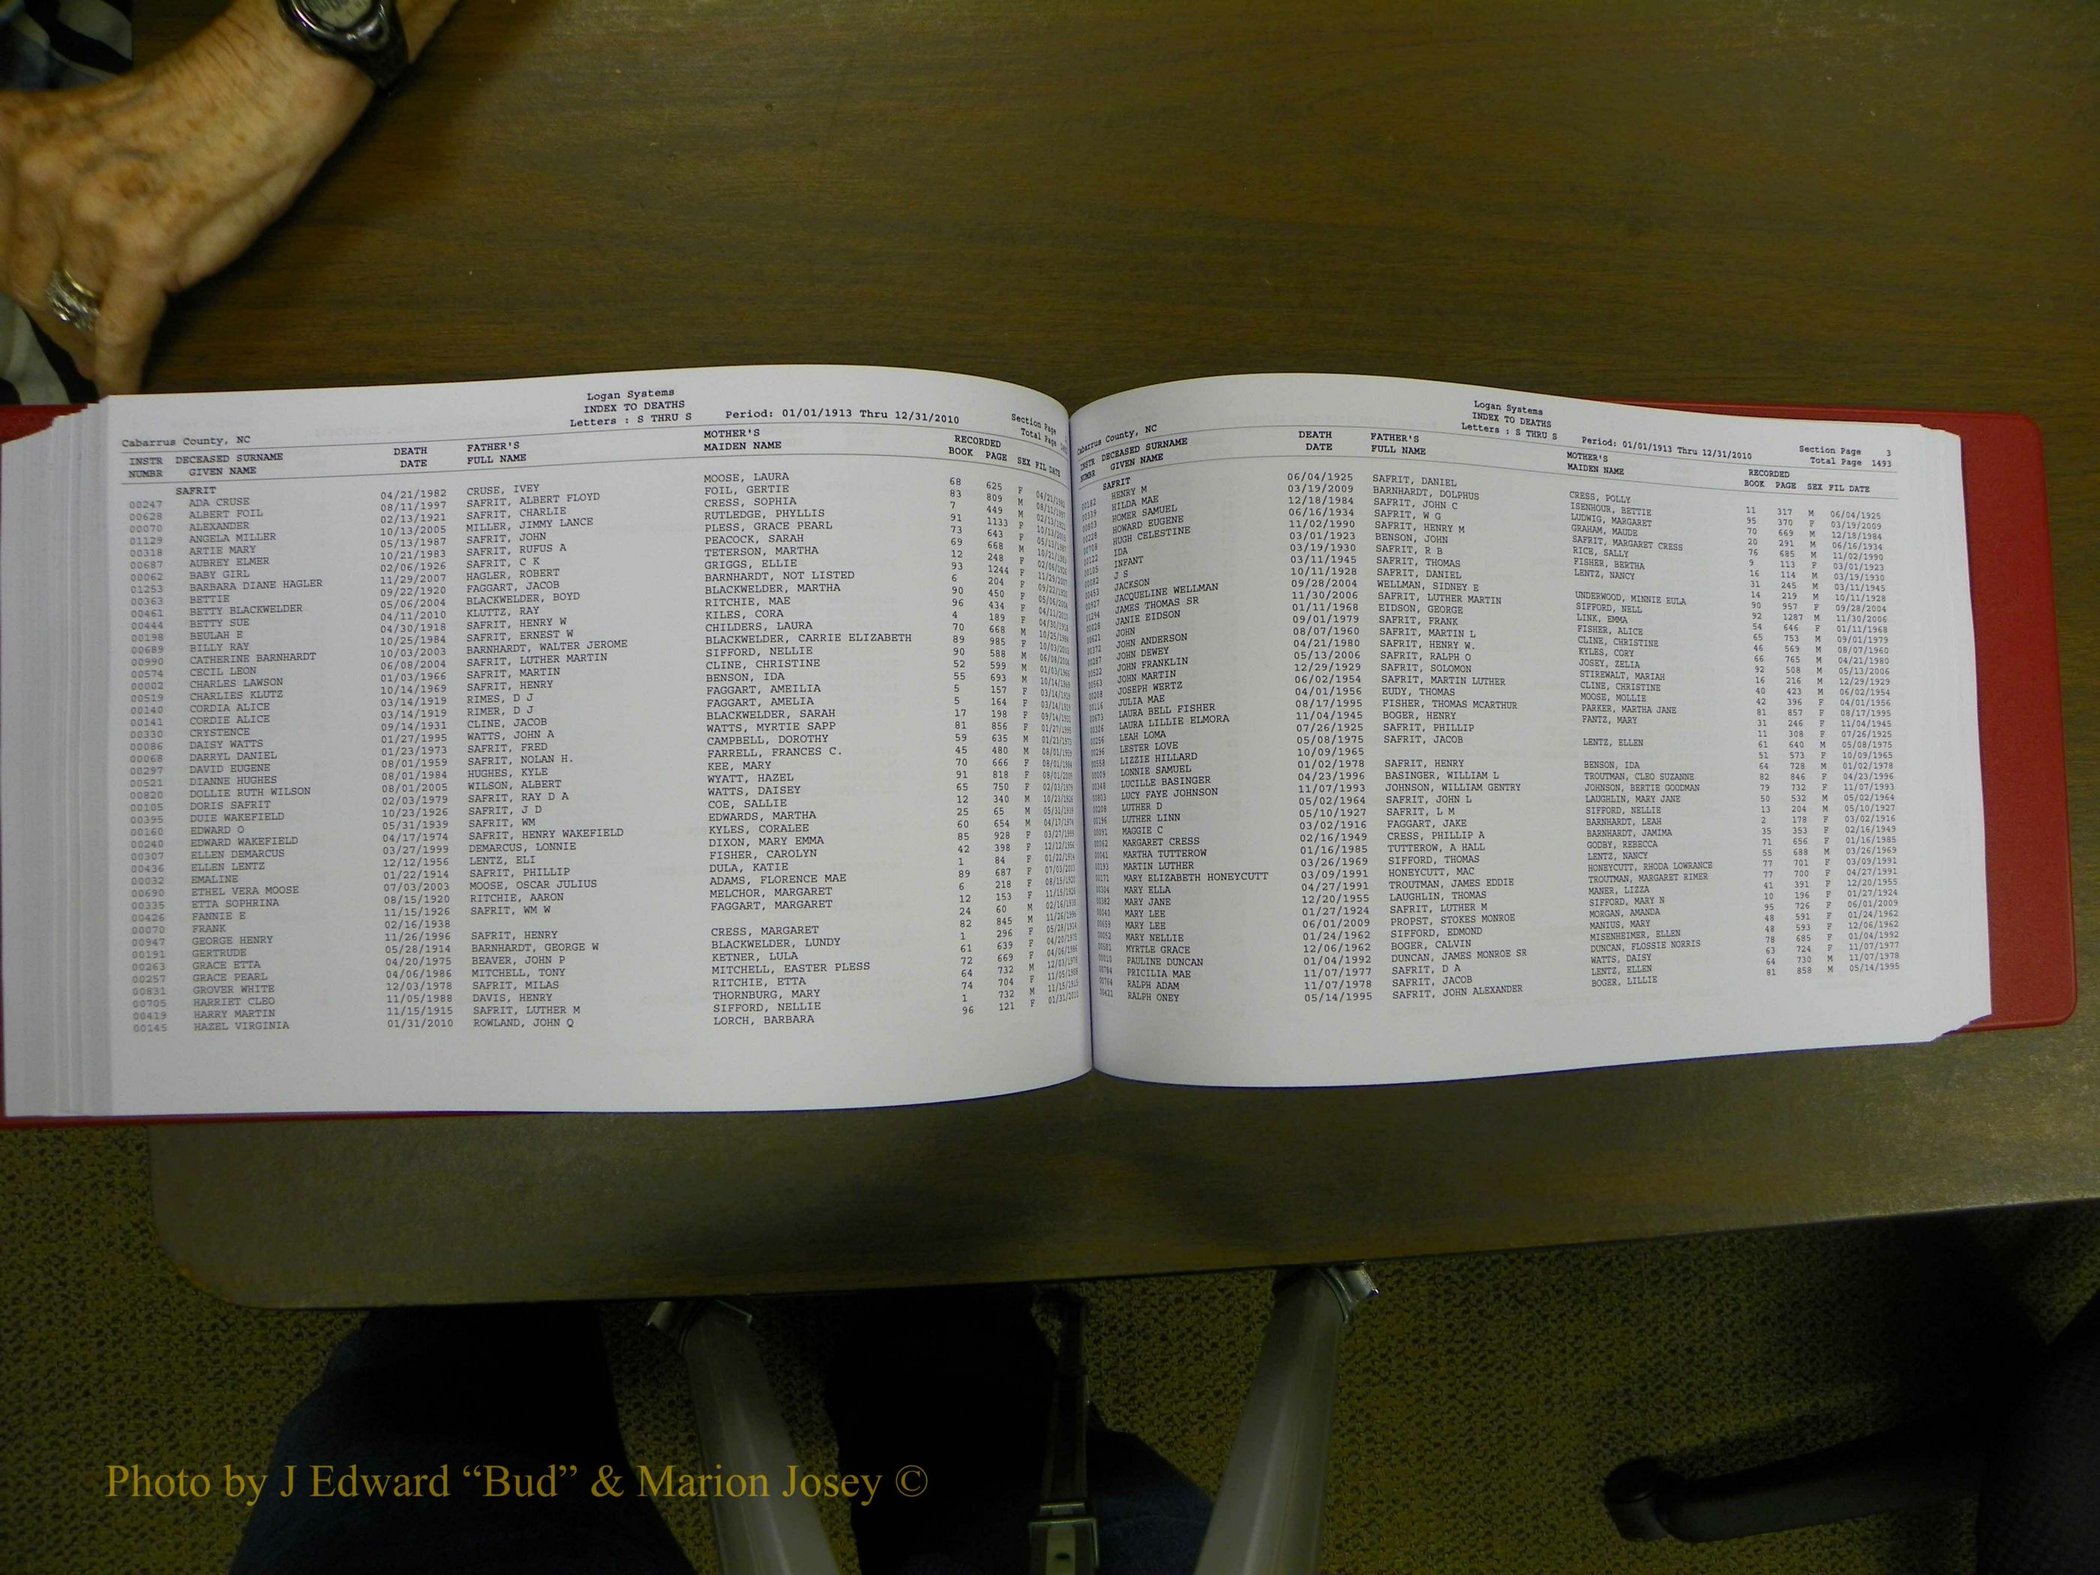 Logan Systems
INDEX TO DEATHS
Letters : S THRU S Period: 01/01/1913 Thru 12/31/2010 Section Page
Cabarrus County, NC Total Page
INSTR DECEASED SURNAME DEATH FATHER'S MOTHER'S RECORDED
NUMBR GIVEN NAME DATE FULL NAME MAIDEN NAME BOOK PAGE SEX FIL DATE
SAFRIT
00247 ADA CRUSE 04/21/1982 CRUSE, IVEY MOOSE, LAURA 68 625 F
00628 ALBERT FOIL 08/11/1997 SAFRIT, ALBERT FLOYD FOIL, GERTIE 83 809 M
00070 ALEXANDER 02/13/1921 SAFRIT, CHARLIE CRESS, SOPHIA 7 449 M
01129 ANGELA MILLER 10/13/2005 MILLER, JIMMY LANCE RUTLEDGE, PHYLLIS 91 1133 F
00318 ARTIE MARY 05/13/1987 SAFRIT, JOHN PLESS, GRACE PEARL 73 643 F
00687 AUBREY ELMER 10/21/1983 SAFRIT, RUFUS A PEACOCK, SARAH 69 668 M
00062 BABY GIRL 02/06/1926 SAFRIT, C K TETERSON, MARTHA 12 248 F
01253 BARBARA DIANE HAGLER 11/29/2007 HAGLER, ROBERT GRIGGS, ELLIE 93 1244 F
00363 BETTIE 09/22/1920 FAGGART, JACOB BARNHARDT, NOT LISTED 6 204 F
00461 BETTY BLACKWELDER 05/06/2004 BLACKWELDER, BOYD BLACKWELDER, MARTHA 90 450 F
00444 BETTY SUE 04/11/2010 KLUTTZ, RAY RITCHIE, MAE 96 434 F
00198 BEULAH E 04/30/1918 SAFRIT, HENRY W KILES, CORA 4 189 F
00689 BILLY RAY 10/25/1984 SAFRIT, ERNEST W CHILDERS, LAURA 70 668 M
00990 CATHERINE BARNHARDT 10/03/2003 BARNHARDT, WALTER JEROME BLACKWELDER, CARRIE ELIZABETH 89 985 F
00574 CECIL LEON 06/08/2004 SAFRIT, LUTHER MARTIN SIFFORD, NELLIE 90 588 M
00002 CHARLES LAWSON 01/03/1966 SAFRIT, MARTIN CLINE, CHRISTINE 52 599 M
00519 CHARLIES KLUTZ 10/14/1969 SAFRIT, HENRY BENSON, IDA 55 693 M
00140 CORDIA ALICE 03/14/1919 RIMES, D J FAGGART, AMEILIA 5 157 F
00141 CORDIE ALICE 03/14/1919 RIMER, D J FAGGART, AMELIA 5 164 F
00330 CRYSTENCE 09/14/1931 CLINE, JACOB BLACKWELDER, SARAH 17 198 F
00086 DAISY WATTS 01/27/1995 WATTS, JOHN A WATTS, MYRTIE SAPP 81 856 F
00068 DARRYL DANIEL 01/23/1973 SAFRIT, FRED CAMPBELL, DOROTHY 59 635 M
00297 DAVID EUGENE 08/01/1959 SAFRIT, NOLAN H. FARRELL, FRANCES C. 45 480 M
00521 DIANNE HUGHES 08/01/1984 HUGHES, KYLE KEE, MARY 70 666 F
00820 DOLLIE RUTH WILSON 08/01/2005 WILSON, ALBERT WYATT, HAZEL 91 818 F
00105 DORIS SAFRIT 02/03/1979 SAFRIT, RAY D A WATTS, DAISEY 65 750 F
00395 DUIE WAKEFIELD 10/23/1926 SAFRIT, J D COE, SALLIE 12 340 M
00160 EDWARD O 05/31/1939 SAFRIT, WM EDWARDS, MARTHA 25 65 M
00240 EDWARD WAKEFIELD 04/17/1974 SAFRIT, HENRY WAKEFIELD KYLES, CORALEE 60 654 M
00307 ELLEN DEMARCUS 03/27/1999 DEMARCUS, LONNIE DIXON, MARY EMMA 85 928 F
00436 ELLEN LENTZ 12/12/1956 LENTZ, ELI FISHER, CAROLYN 42 398 F
00032 EMALINE 01/22/1914 SAFRIT, PHILLIP DULA, KATIE 1 84 F
00690 ETHEL VERA MOOSE 07/03/2003 MOOSE, OSCAR JULIUS ADAMS, FLORENCE MAE 89 687 F
00335 ETTA SOPHRINA 08/15/1920 RITCHIE, AARON MELCHOR, MARGARET 6 218 F
00426 FANNIE E 11/15/1926 SAFRIT, WM W FAGGART, MARGARET 12 153 F
00070 FRANK 02/16/1938 24 60 M
00947 GEORGE HENRY 11/26/1996 SAFRIT, HENRY CRESS, MARGARET 82 845 M
00191 GERTRUDE 05/28/1914 BARNHARDT, GEORGE W BLACKWELDER, LUNDY 1 296 F
00263 GRACE ETTA 04/20/1975 BEAVER, JOHN P KETNER, LULA 61 639 F
00257 GRACE PEARL 04/06/1986 MITCHELL, TONY MITCHELL, EASTER PLESS 72 669 F
00831 GROVER WHITE 12/03/1978 SAFRIT, MILAS RITCHIE, ETTA 64 732 M
00705 HARRIET CLEO 11/05/1988 DAVIS, HENRY THORNBURG, MARY 74 704 F
00419 HARRY MARTIN 11/15/1915 SAFRIT, LUTHER M SIFFORD, NELLIE 1 732 M
00145 HAZEL VIRGINIA 01/31/2010 ROWLAND, JOHN Q LORCH, BARBARA 96 121 F
Logan Systems
INDEX TO DEATHS
Letters : S THRU S Period: 01/01/1913 Thru 12/31/2010 Section Page 3
Cabarrus County, NC Total Page 1493
INSTR DECEASED SURNAME DEATH FATHER'S MOTHER'S RECORDED
NUMBR GIVEN NAME DATE FULL NAME MAIDEN NAME BOOK PAGE SEX FIL DATE
SAFRIT
HENRY M 06/04/1925 SAFRIT, DANIEL CRESS, POLLY 11 317 M 06/04/1925
HILDA MAE 03/19/2009 BARNHARDT, DOLPHUS ISENHOUR, BETTIE 95 370 F 03/19/2009
HOMER SAMUEL 12/18/1984 SAFRIT, JOHN C LUDWIG, MARGARET 70 669 M 12/18/1984
HOWARD EUGENE 06/16/1934 SAFRIT, W G GRAHAM, MAUDE 20 291 M 06/16/1934
HUGH CELESTINE 11/02/1990 SAFRIT, HENRY M SAFRIT, MARGARET CRESS 76 685 M 11/02/1990
IDA 03/01/1923 BENSON, JOHN RICE, SALLY 9 113 F 03/01/1923
INFANT 03/19/1930 SAFRIT, R B FISHER, BERTHA 16 114 M 03/19/1930
J S 03/11/1945 SAFRIT, THOMAS LENTZ, NANCY 31 245 M 03/11/1945
JACKSON 10/11/1928 SAFRIT, DANIEL 14 219 M 10/11/1928
JACQUELINE WELLMAN 09/28/2004 WELLMAN, SIDNEY E UNDERWOOD, MINNIE EULA 90 957 F 09/28/2004
JAMES THOMAS SR 11/30/2006 SAFRIT, LUTHER MARTIN SIFFORD, NELL 92 1287 M 11/30/2006
JANIE EIDSON 01/11/1968 EIDSON, GEORGE LINK, EMMA 54 646 F 01/11/1968
JOHN 09/01/1979 SAFRIT, FRANK FISHER, ALICE 65 753 M 09/01/1979
JOHN ANDERSON 08/07/1960 SAFRIT, MARTIN L CLINE, CHRISTINE 46 569 M 08/07/1960
JOHN DEWEY 04/21/1980 SAFRIT, HENRY W. KYLES, CORY 66 765 M 04/21/1980
JOHN FRANKLIN 05/13/2006 SAFRIT, RALPH O JOSEY, ZELIA 92 508 M 05/13/2006
JOHN MARTIN 12/29/1929 SAFRIT, SOLOMON STIREWALT, MARIAH 16 216 M 12/29/1929
JOSEPH WERTZ 06/02/1954 SAFRIT, MARTIN LUTHER CLINE, CHRISTINE 40 423 M 06/02/1954
JULIA MAE 04/01/1956 EUDY, THOMAS MOOSE, MOLLIE 42 396 F 04/01/1956
LAURA BELL FISHER 08/17/1995 FISHER, THOMAS MCARTHUR PARKER, MARTHA JANE 81 857 F 08/17/1995
LAURA LILLIE ELMORA 11/04/1945 BOGER, HENRY PANTZ, MARY 31 246 F 11/04/1945
LEAH LOMA 07/26/1925 SAFRIT, PHILLIP 11 308 F 07/26/1925
LESTER LOVE 05/08/1975 SAFRIT, JACOB LENTZ, ELLEN 61 640 M 05/08/1975
LIZZIE HILLARD 10/09/1965 51 573 F 10/09/1965
LONNIE SAMUEL 01/02/1978 SAFRIT, HENRY BENSON, IDA 64 728 M 01/02/1978
LUCILLE BASINGER 04/23/1996 BASINGER, WILLIAM L TROUTMAN, CLEO SUZANNE 82 846 F 04/23/1996
LUCY FAYE JOHNSON 11/07/1993 JOHNSON, WILLIAM GENTRY JOHNSON, BERTIE GOODMAN 79 732 F 11/07/1993
LUTHER D 05/02/1964 SAFRIT, JOHN L LAUGHLIN, MARY JANE 50 532 M 05/02/1964
LUTHER LINN 05/10/1927 SAFRIT, L M SIFFORD, NELLIE 13 204 M 05/10/1927
MAGGIE C 03/02/1916 FAGGART, JAKE BARNHARDT, LEAH 2 178 F 03/02/1916
MARGARET CRESS 02/16/1949 CRESS, PHILLIP A BARNHARDT, JAMIMA 35 353 F 02/16/1949
MARTHA TUTTEROW 01/16/1985 TUTTEROW, A HALL GODBY, REBECCA 71 656 F 01/16/1985
MARTIN LUTHER 03/26/1969 SIFFORD, THOMAS LENTZ, NANCY 55 688 M 03/26/1969
MARY ELIZABETH HONEYCUTT 03/09/1991 HONEYCUTT, MAC HONEYCUTT, RHODA LOWRANCE 77 701 F 03/09/1991
MARY ELLA 04/27/1991 TROUTMAN, JAMES EDDIE TROUTMAN, MARGARET RIMER 77 700 F 04/27/1991
MARY JANE 12/20/1955 LAUGHLIN, THOMAS MANER, LIZZA 41 391 F 12/20/1955
MARY LEE 01/27/1924 SAFRIT, LUTHER M SIFFORD, MARY N 10 196 F 01/27/1924
MARY LEE 06/01/2009 PROPST, STOKES MONROE MORGAN, AMANDA 95 726 F 06/01/2009
MARY NELLIE 01/24/1962 SIFFORD, EDMOND MANIUS, MARY 48 591 F 01/24/1962
MYRTLE GRACE 12/06/1962 BOGER, CALVIN MISENHEIMER, ELLEN 48 593 F 12/06/1962
PAULINE DUNCAN 01/04/1992 DUNCAN, JAMES MONROE SR DUNCAN, FLOSSIE NORRIS 78 685 F 01/04/1992
PRICILIA MAE 11/07/1977 SAFRIT, D A WATTS, DAISY 63 724 F 11/07/1977
RALPH ADAM 11/07/1978 SAFRIT, JACOB LENTZ, ELLEN 64 730 M 11/07/1978
RALPH ONEY 05/14/1995 SAFRIT, JOHN ALEXANDER BOGER, LILLIE 81 858 M 05/14/1995
Photo by J Edward “Bud” & Marion Josey ©